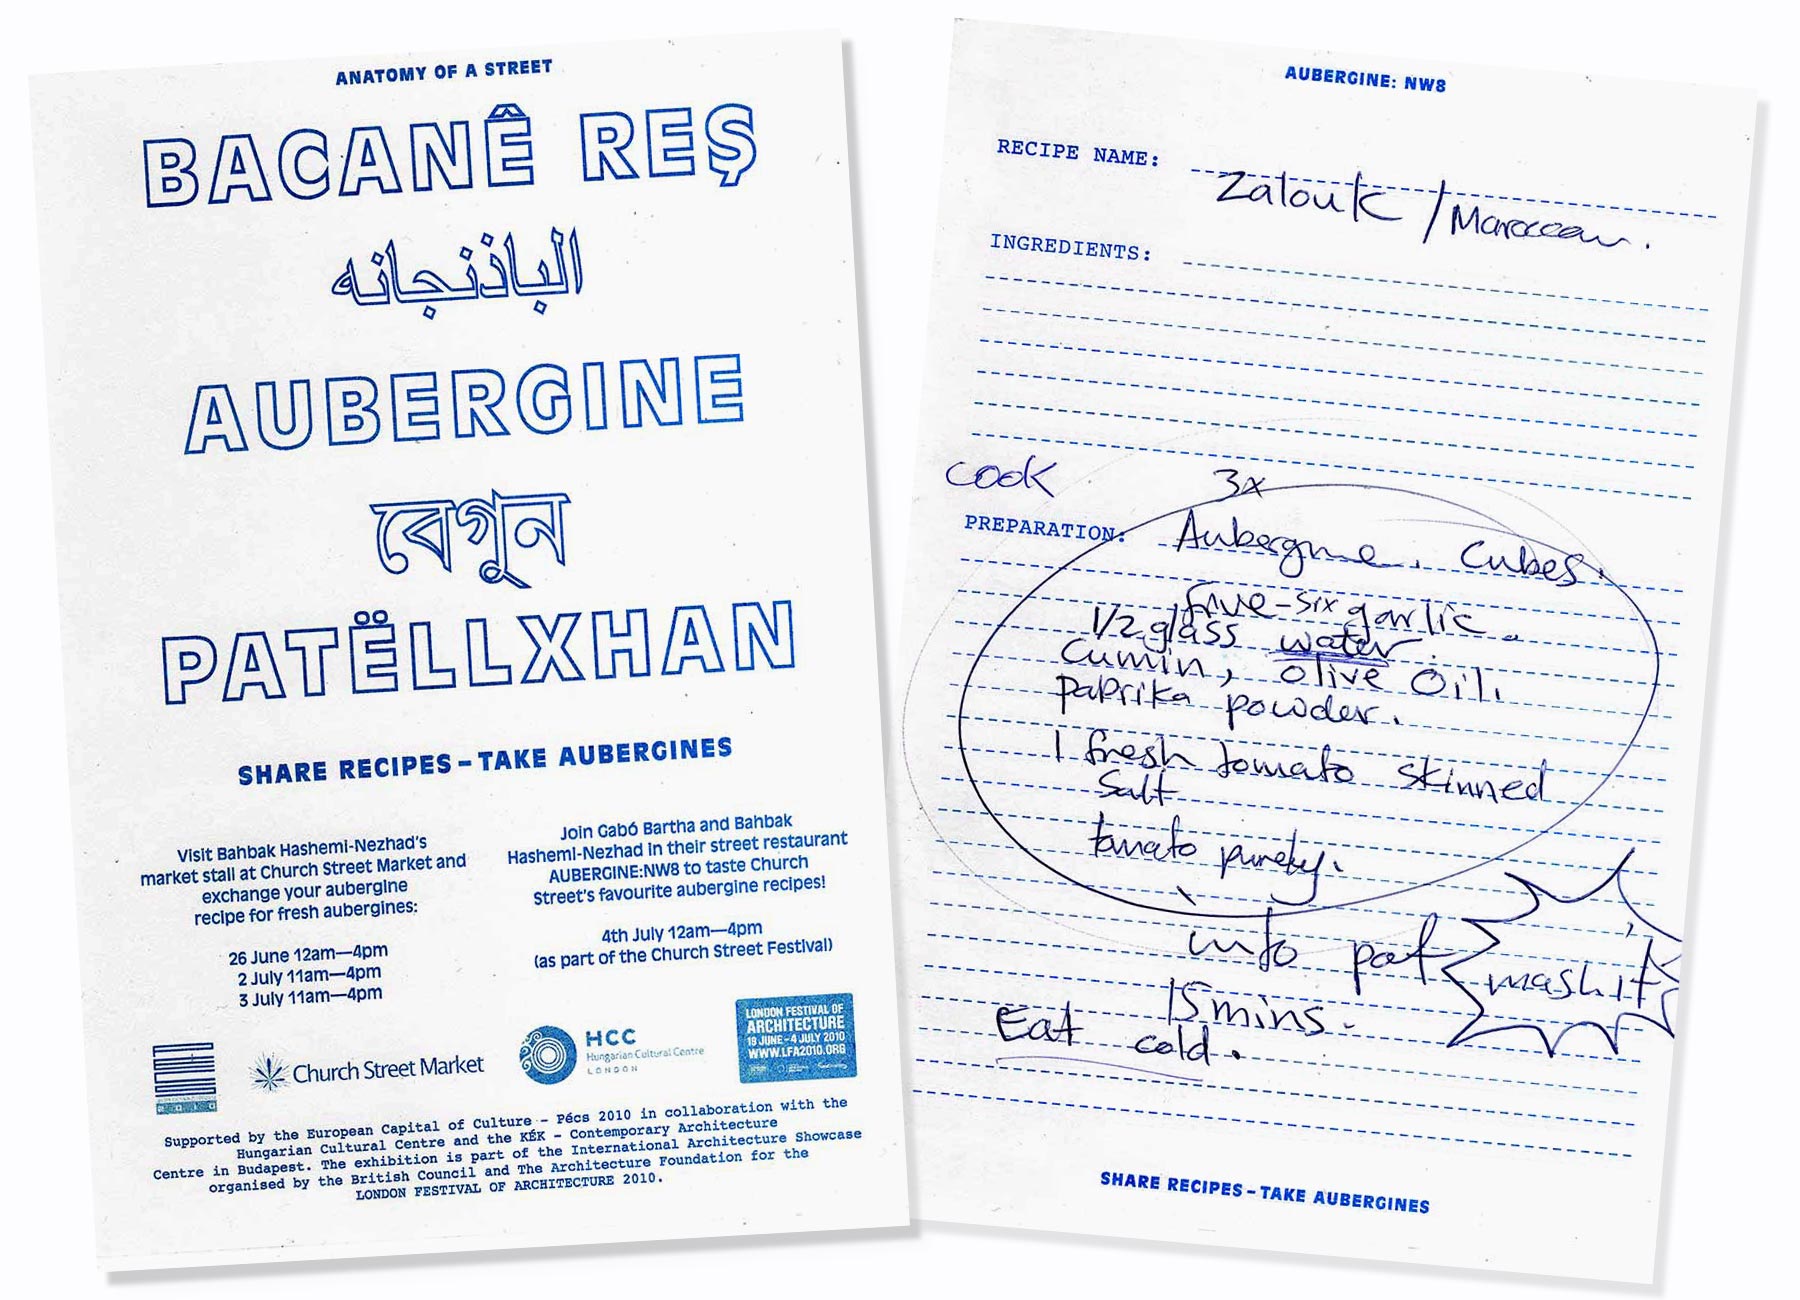 ANATOMY OF A STREET
BACANÊ REŞ
الباذنجانه
AUBERGINE
বেগুন
PATËLLXHAN
SHARE RECIPES – TAKE AUBERGINES
Visit Bahbak Hashemi-Nezhad's
market stall at Church Street Market and
exchange your aubergine
recipe for fresh aubergines:
26 June 12am—4pm
2 July 11am—4pm
3 July 11am—4pm
Join Gabó Bartha and Bahbak
Hashemi-Nezhad in their street restaurant
AUBERGINE:NW8 to taste Church
Street's favourite aubergine recipes!
4th July 12am—4pm
(as part of the Church Street Festival)
Church Street Market
HCC
Hungarian Cultural Centre
LONDON
LONDON FESTIVAL OF
ARCHITECTURE
19 JUNE-4 JULY 2010
WWW.LFA2010.ORG
Supported by the European Capital of Culture – Pécs 2010 in collaboration with the
Hungarian Cultural Centre and the KÉK – Contemporary Architecture
Centre in Budapest. The exhibition is part of the International Architecture Showcase
organised by the British Council and The Architecture Foundation for the
LONDON FESTIVAL OF ARCHITECTURE 2010.
AUBERGINE: NW8
RECIPE NAME: Zalouk / Maroccan.
INGREDIENTS:
cook 3x
PREPARATION: Aubergine. Cubes.
five-six garlic.
1/2 glass water.
cumin, olive oil.
paprika powder.
1 fresh tomato skinned
Salt
tomato purety.
into pot
mash it
15 mins.
Eat cold.
SHARE RECIPES – TAKE AUBERGINES